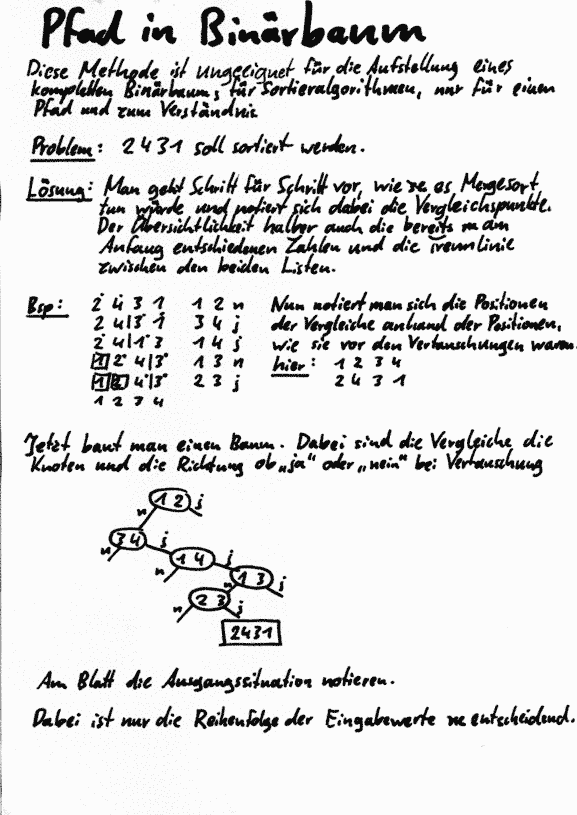 Pfad in Binärbaum
Diese Methode ist ungeeignet für die Aufstellung eines
kompletten Binärbaums für Sortieralgorithmen, nur für einen
Pfad und zum Verständnis
Problem: 2431 soll sortiert werden.
Lösung: Man geht Schritt für Schritt vor, wie es Mergesort
tun würde und notiert sich dabei die Vergleichspunkte.
Der Übersichtlichkeit halber auch die bereits am
Anfang entschiedenen Zahlen und die Trennlinie
zwischen den beiden Listen.
Bsp: 2 4 3 1 1 2 n Nun notiert man sich die Positionen
2 4|3 1 3 4 j der Vergleiche anhand der Positionen,
2 4|1 3 1 4 j wie sie vor den Vertauschungen waren.
1 2 4|3 1 3 n hier: 1 2 3 4
1 2 4|3 2 3 j 2 4 3 1
1 2 3 4
Jetzt baut man einen Baum. Dabei sind die Vergleiche die
Knoten und die Richtung ob „ja“ oder „nein“ bei Vertauschung
1 2 j
n
3 4 j
n
1 4 j
n
1 3 j
n
2 3 j
n
2431
Am Blatt die Ausgangssituation notieren.
Dabei ist nur die Reihenfolge der Eingabewerte entscheidend.